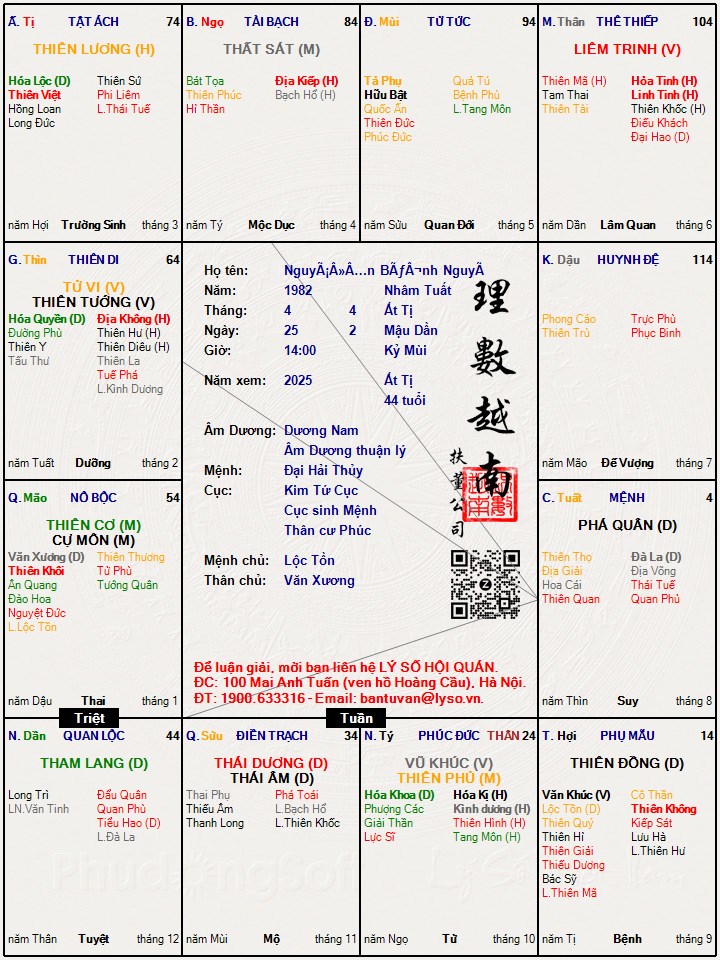 Ấ. Tị TẬT ÁCH 74
THIÊN LƯƠNG (H)
Hóa Lộc (D) Thiên Sứ
Thiên Việt Phi Liêm
Hồng Loan L.Thái Tuế
Long Đức
năm Hợi Trường Sinh tháng 3
B. Ngọ TÀI BẠCH 84
THẤT SÁT (M)
Bát Tọa Địa Kiếp (H)
Thiên Phúc Bạch Hổ (H)
Hỉ Thần
năm Tý Mộc Dục tháng 4
Đ. Mùi TỬ TỨC 94
Tả Phụ Quả Tú
Hữu Bật Bệnh Phù
Quốc Ấn L.Tang Môn
Thiên Đức
Phúc Đức
năm Sửu Quan Đới tháng 5
M. Thân THÊ THIẾP 104
LIÊM TRINH (V)
Thiên Mã (H) Hỏa Tinh (H)
Tam Thai Linh Tinh (H)
Thiên Tài Thiên Khốc (H)
Điếu Khách
Đại Hao (D)
năm Dần Lâm Quan tháng 6
G. Thìn THIÊN DI 64
TỬ VI (V)
THIÊN TƯỚNG (V)
Hóa Quyền (D) Địa Không (H)
Đường Phù Thiên Hư (H)
Thiên Y Thiên Diêu (H)
Tấu Thư Thiên La
Tuế Phá
L.Kình Dương
năm Tuất Dưỡng tháng 2
Họ tên: NguyÃ¡Â»Â…n BÃƒÂ¬nh NguyÃ
Năm: 1982 Nhâm Tuất
Tháng: 4 4 Ất Tị
Ngày: 25 2 Mậu Dần
Giờ: 14:00 Kỷ Mùi
Năm xem: 2025 Ất Tị
44 tuổi
Âm Dương: Dương Nam
Âm Dương thuận lý
Mệnh: Đại Hải Thủy
Cục: Kim Tứ Cục
Cục sinh Mệnh
Thân cư Phúc
Mệnh chủ: Lộc Tồn
Thân chủ: Văn Xương
理數越南
扶董公司
Để luận giải, mời bạn liên hệ LÝ SỐ HỘI QUÁN.
ĐC: 100 Mai Anh Tuấn (ven hồ Hoàng Cầu), Hà Nội.
ĐT: 1900.633316 - Email: bantuvan@lyso.vn.
K. Dậu HUYNH ĐỆ 114
Phong Cáo Trực Phù
Thiên Trù Phục Binh
năm Mão Đế Vượng tháng 7
Q. Mão NÔ BỘC 54
THIÊN CƠ (M)
CỰ MÔN (M)
Văn Xương (D) Thiên Thương
Thiên Khôi Tử Phù
Ân Quang Tướng Quân
Đào Hoa
Nguyệt Đức
L.Lộc Tồn
năm Dậu Thai tháng 1
C. Tuất MỆNH 4
PHÁ QUÂN (D)
Thiên Thọ Đà La (D)
Địa Giải Địa Võng
Hoa Cái Thái Tuế
Thiên Quan Quan Phủ
năm Thìn Suy tháng 8
Triệt
Tuần
N. Dần QUAN LỘC 44
THAM LANG (D)
Long Trì Đẩu Quân
LN.Văn Tinh Quan Phù
Tiểu Hao (D)
L.Đà La
năm Thân Tuyệt tháng 12
Q. Sửu ĐIỀN TRẠCH 34
THÁI DƯƠNG (D)
THÁI ÂM (D)
Thai Phụ Phá Toái
Thiếu Âm L.Bạch Hổ
Thanh Long L.Thiên Khốc
năm Mùi Mộ tháng 11
N. Tý PHÚC ĐỨC THÂN 24
VŨ KHÚC (V)
THIÊN PHỦ (M)
Hóa Khoa (D) Hóa Kị (H)
Phượng Các Kình dương (H)
Giải Thần Thiên Hình (H)
Lực Sĩ Tang Môn (H)
năm Ngọ Tử tháng 10
T. Hợi PHỤ MẪU 14
THIÊN ĐỒNG (D)
Văn Khúc (V) Cô Thần
Lộc Tồn (D) Thiên Không
Thiên Quý Kiếp Sát
Thiên Hỉ Lưu Hà
Thiên Giải L.Thiên Hư
Thiếu Dương
Bác Sỹ
L.Thiên Mã
năm Tị Bệnh tháng 9